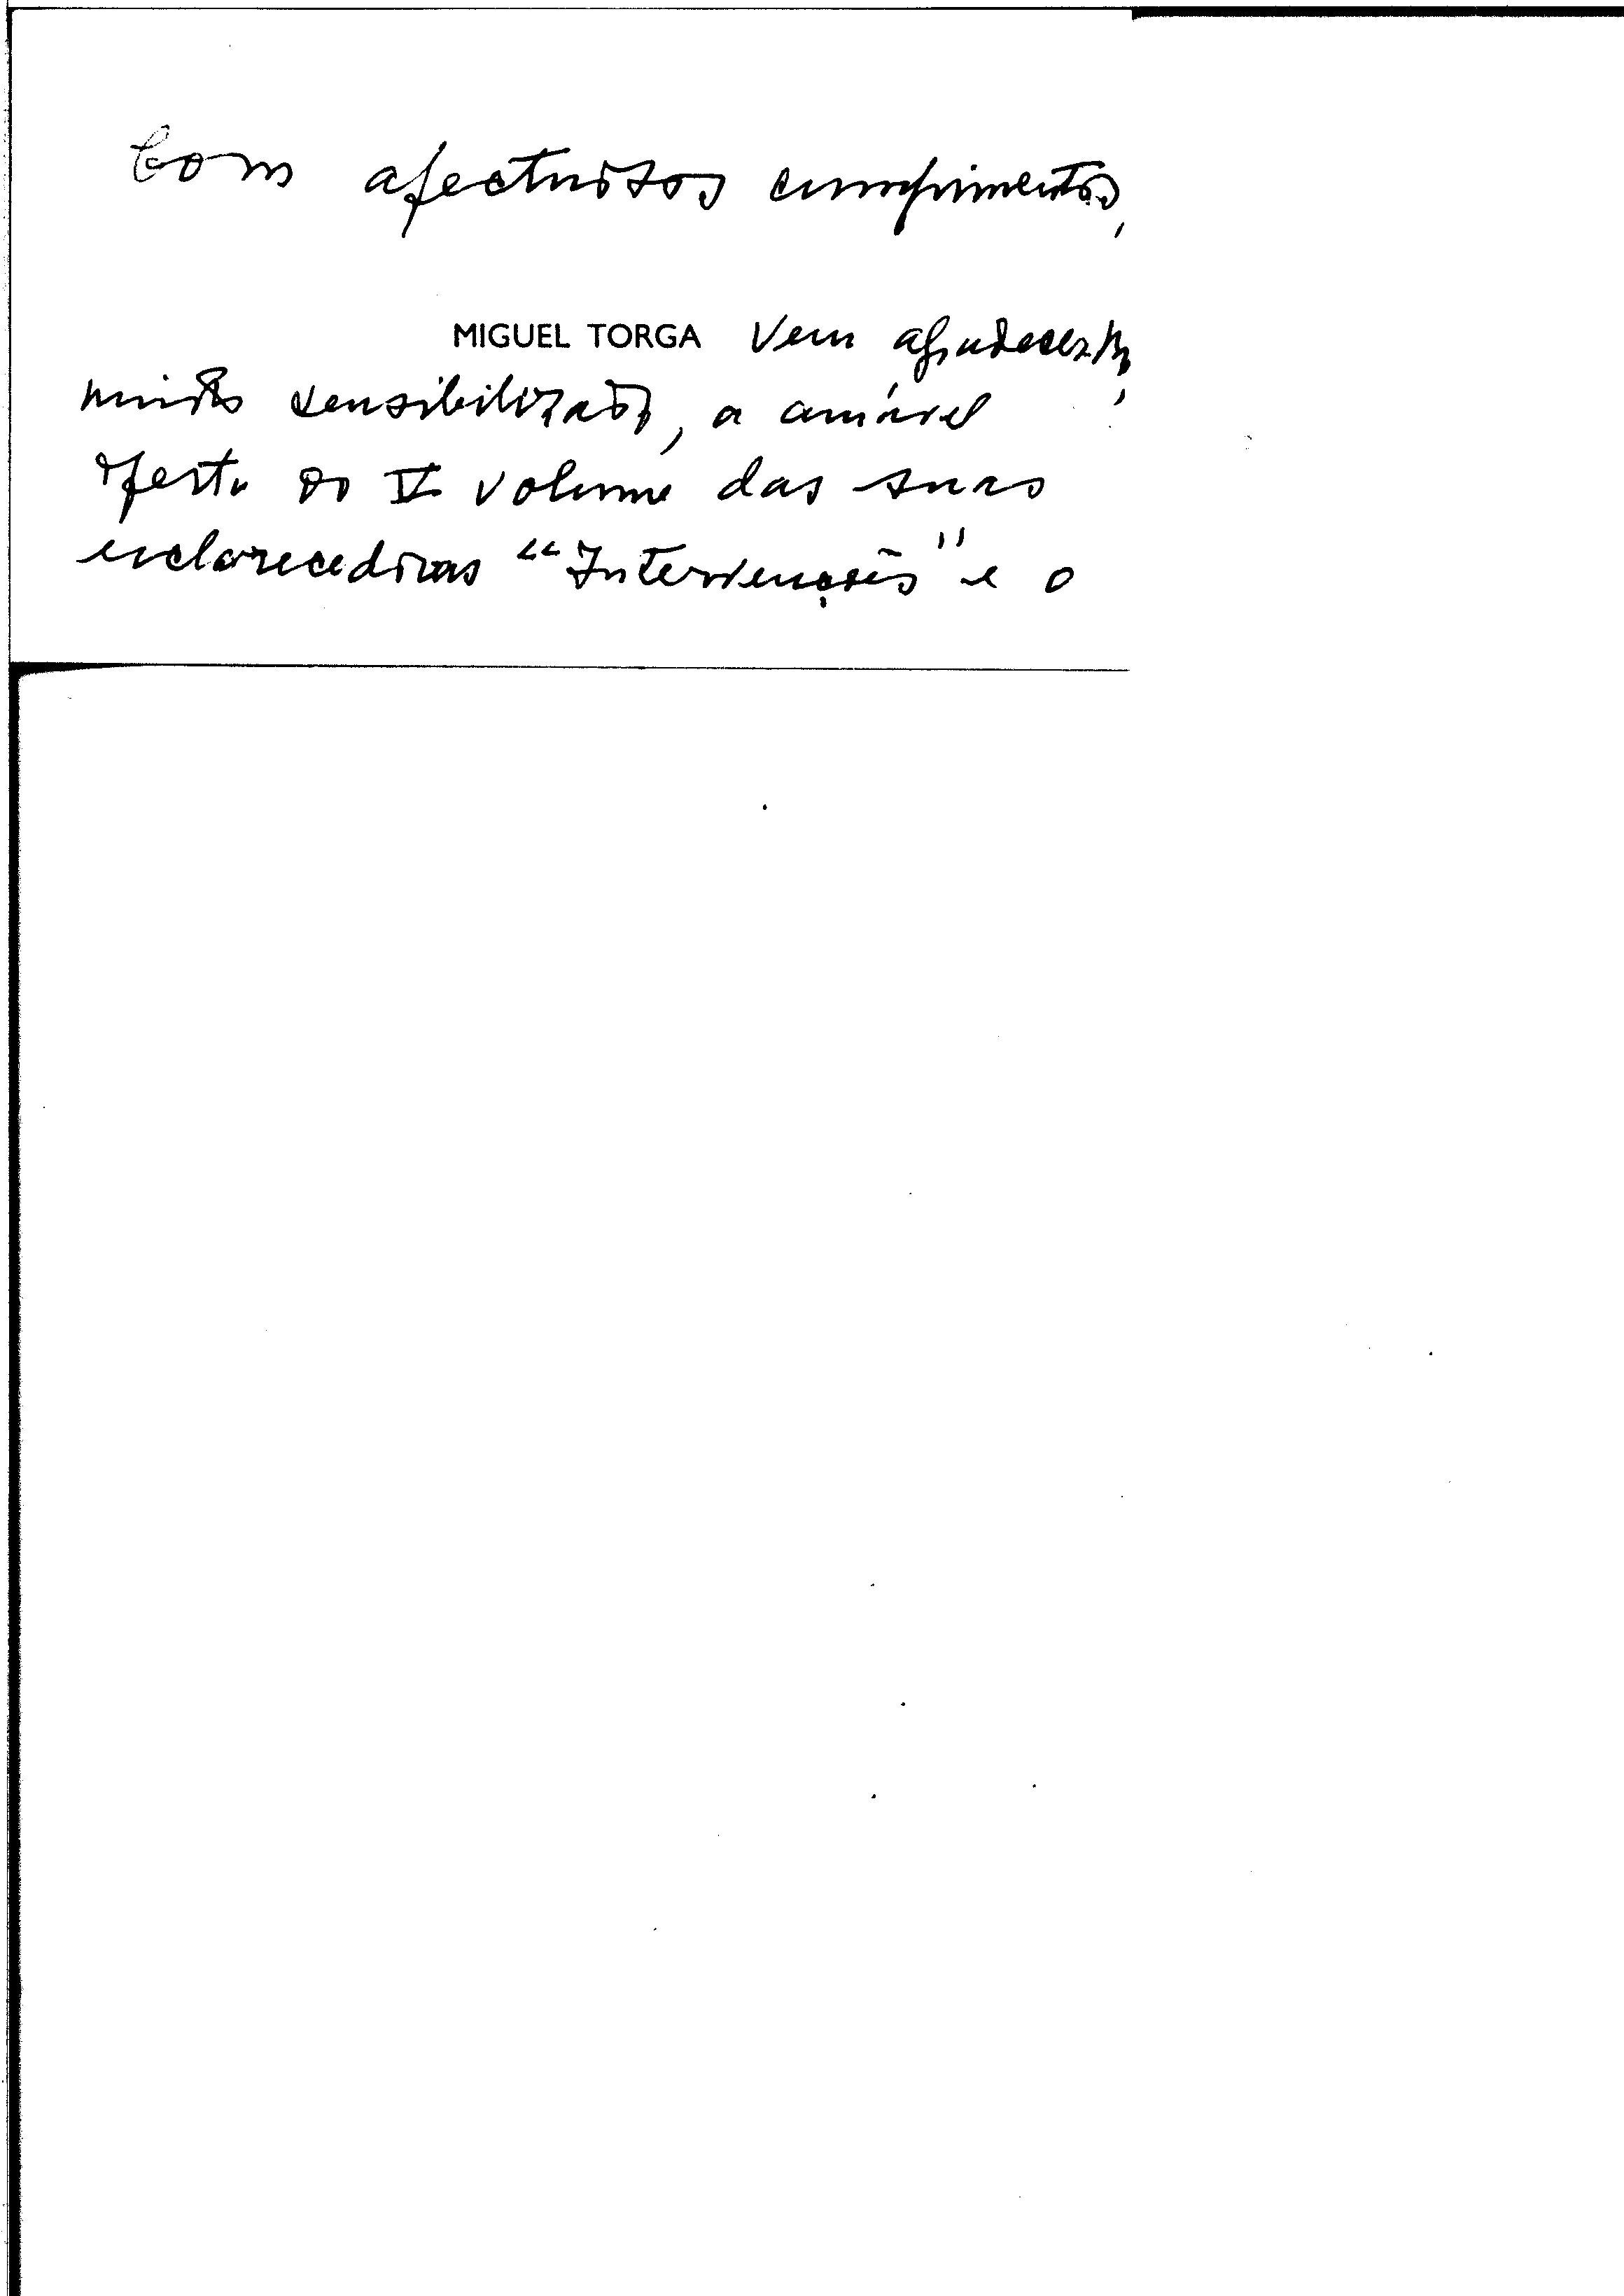 Com afectuosos cumprimentos,
MIGUEL TORGA vem agradecer-lhe,
muito sensibilizado, a amável
oferta do volume das suas
esclarecedoras "Intervenções" e o